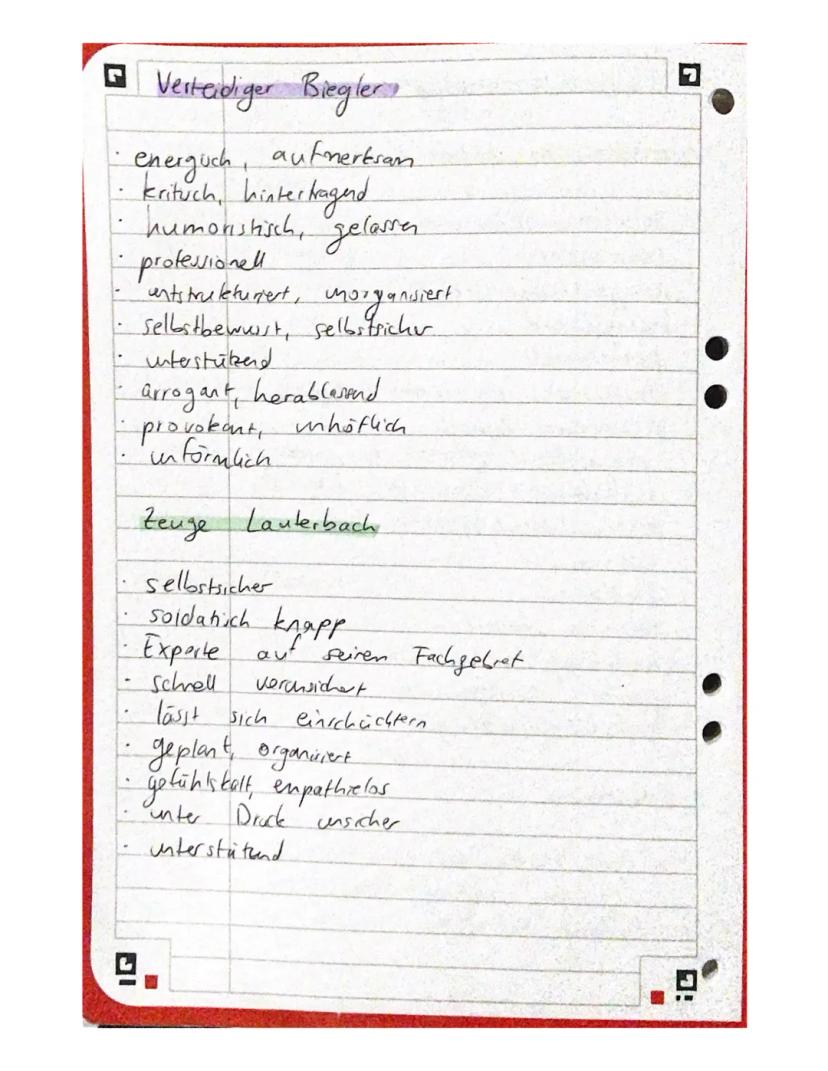 Verteidiger Biegler
· energisch, aufmerksam
· kritisch, hinterfragend
· humoristisch, gelassen
· professionell
· unstrukturiert, unorganisiert
· selbstbewusst, selbstsicher
· unterstützend
· arrogant, herablassend
· provokant, unhöflich
· unförmlich
Zeuge Lauterbach
· selbstsicher
· soldatisch knapp
· Experte auf seinen Fachgebiet
· schnell verunsichert
· lässt sich einschüchtern
· geplant, organisiert
· gefühlskalt, empathielos
· unter Druck unsicher
· unterstützend